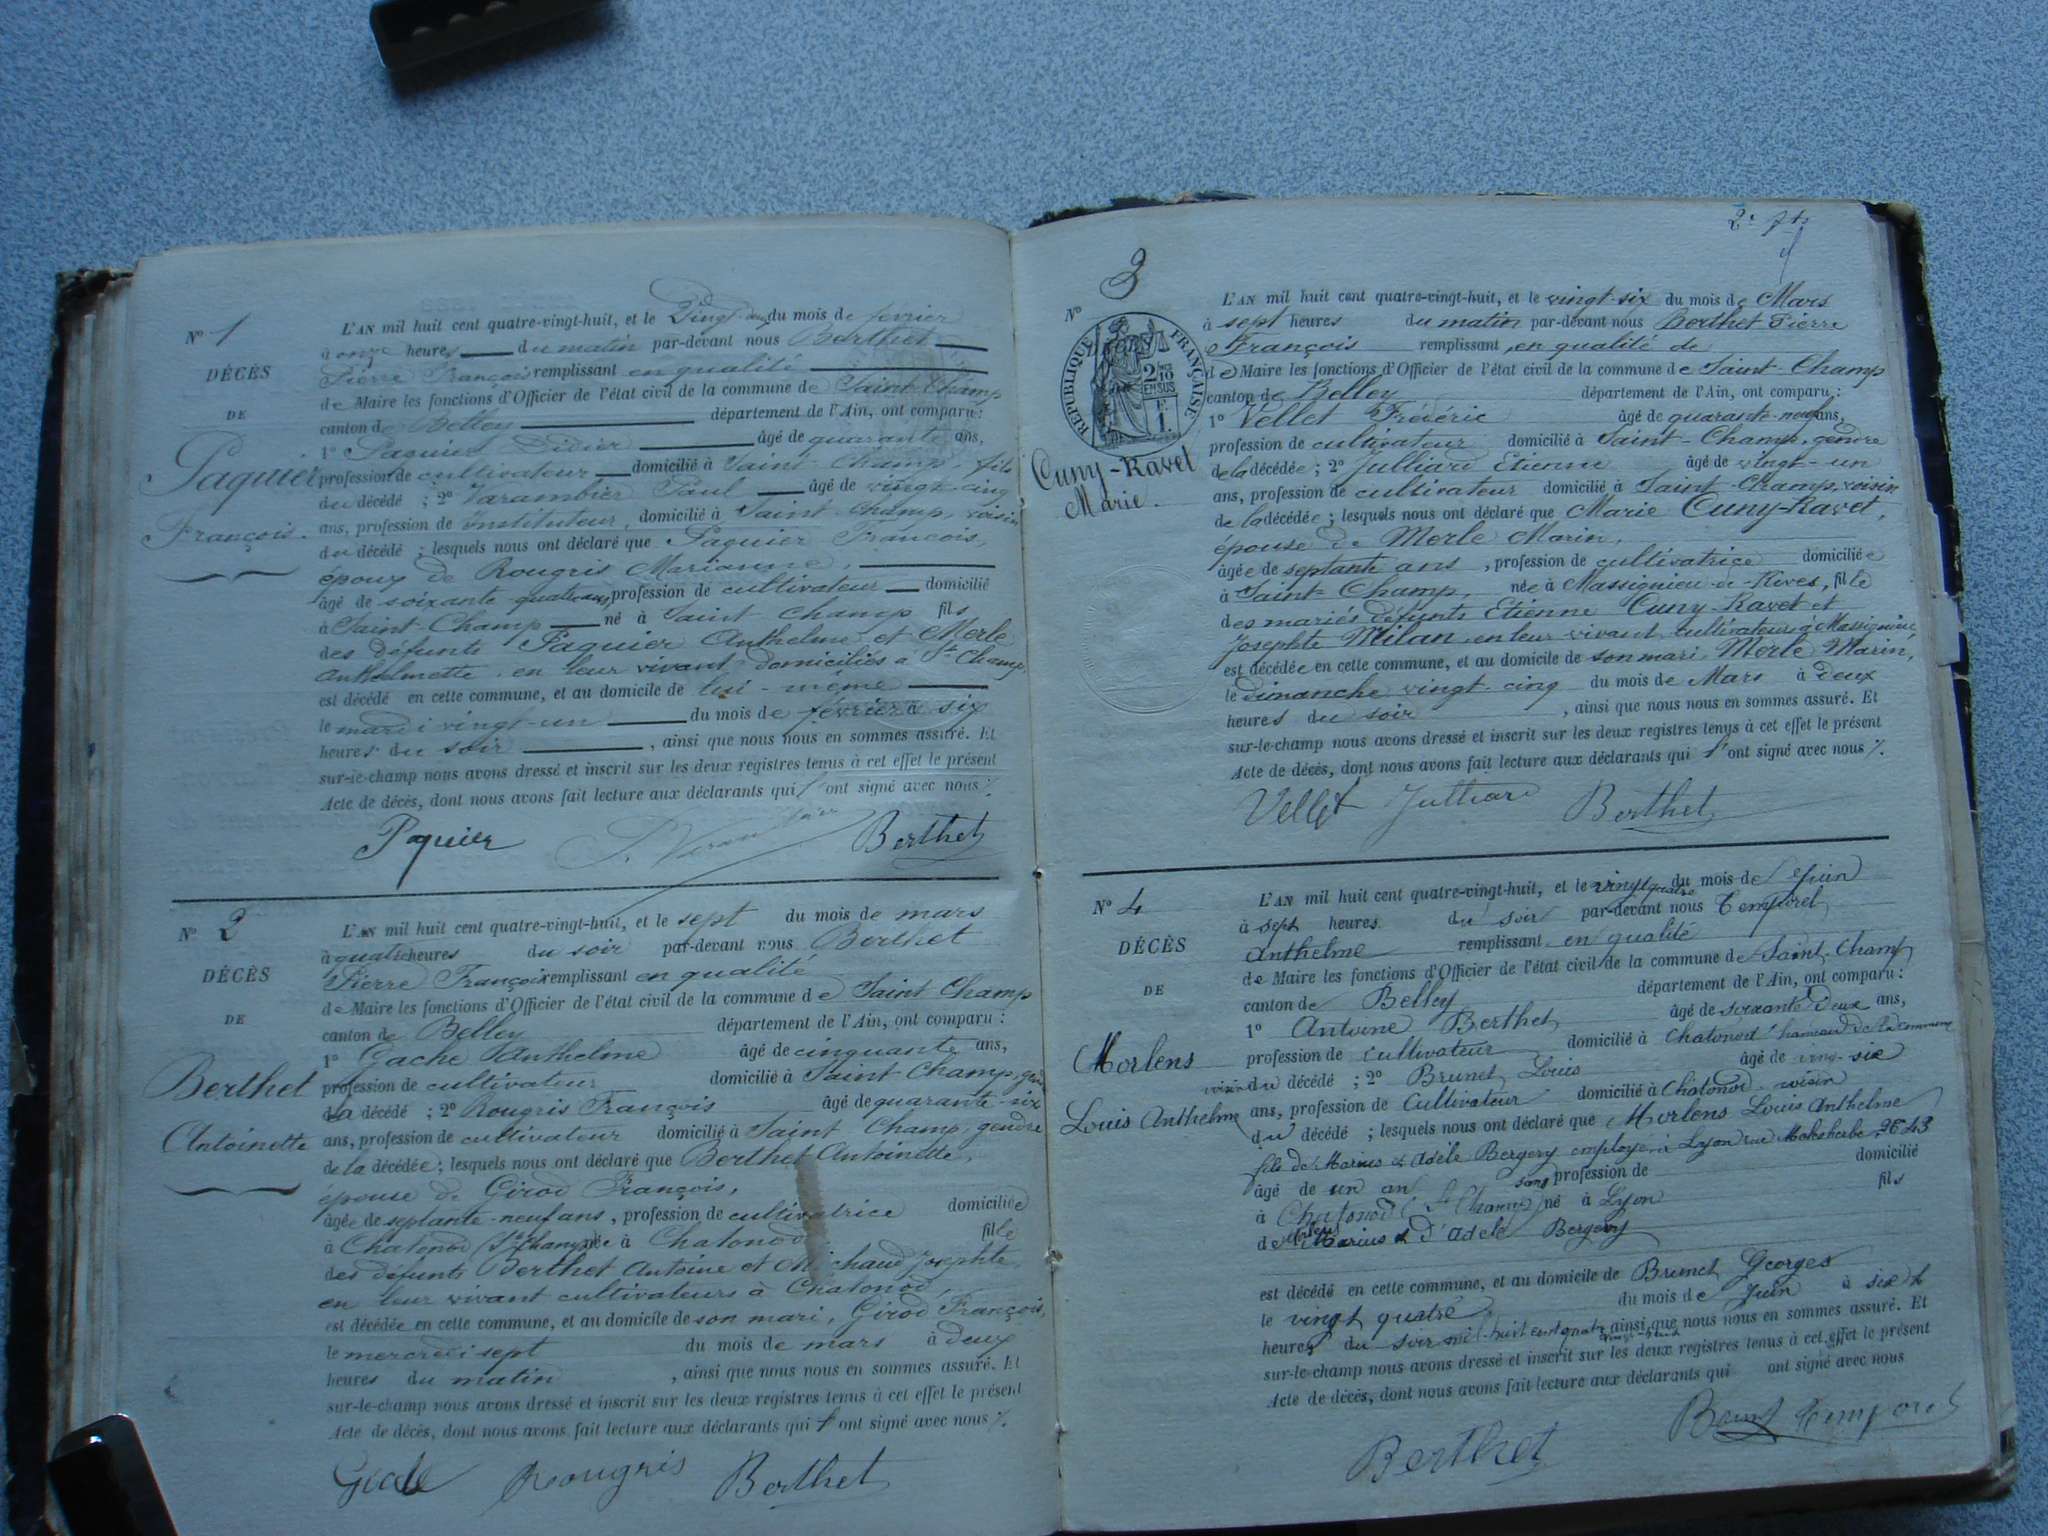 N° 1
DÉCÈS
DE
Paquier
François.
L'AN mil huit cent quatre-vingt-huit, et le Vingt-deux du mois de février
à onze heures du matin par-devant nous Berthet
Pierre François remplissant en qualité
de Maire les fonctions d'Officier de l'état civil de la commune de Saint-Champ
canton de Belley département de l'Ain, ont comparu :
1° Paquier Didier âgé de quarante ans,
profession de cultivateur domicilié à Saint-Champ, fils
du décédé ; 2° Varambier Paul âgé de vingt-cinq
ans, profession de Instituteur, domicilié à Saint-Champ, voisin
du décédé ; lesquels nous ont déclaré que Paquier François,
époux de Rougris Marianne,
âgé de soixante-quatre ans, profession de cultivateur domicilié
à Saint-Champ né à Saint Champ fils
des défunts Paquier Anthelme et Merle
Anthelmette en leur vivant domiciliés à St Champ,
est décédé en cette commune, et au domicile de lui-même
le mardi vingt-un du mois de février à six
heures du soir, ainsi que nous nous en sommes assuré. Et
sur-le-champ nous avons dressé et inscrit sur les deux registres tenus à cet effet le présent
Acte de décès, dont nous avons fait lecture aux déclarants qui l'ont signé avec nous ./.
Paquier Berthet
N° 2
DÉCÈS
DE
Berthet
Antoinette
L'AN mil huit cent quatre-vingt-huit, et le sept du mois de mars
à quatre heures du soir par-devant nous Berthet
Pierre François remplissant en qualité
de Maire les fonctions d'Officier de l'état civil de la commune de Saint Champ
canton de Belley département de l'Ain, ont comparu :
1° Gache Anthelme âgé de cinquante ans,
profession de cultivateur domicilié à Saint Champ,
de la décédé ; 2° Rougris François âgé de quarante-six
ans, profession de cultivateur domicilié à Saint Champ, gendre
de la décédée ; lesquels nous ont déclaré que Berthet Antoinette,
épouse de Girod François,
âgée de septante-neuf ans, profession de cultivatrice domiciliée
à Chatonod (St Champ) née à Chatonod fille
des défunts Berthet Antoine et Michaud Josephte
en leur vivant cultivateurs à Chatonod,
est décédée en cette commune, et au domicile de son mari, Girod François,
le mercredi sept du mois de mars à deux
heures du matin, ainsi que nous nous en sommes assuré. Et
sur-le-champ nous avons dressé et inscrit sur les deux registres tenus à cet effet le présent
Acte de décès, dont nous avons fait lecture aux déclarants qui l'ont signé avec nous ./.
Rougris Berthet
N° 3
RÉPUBLIQUE FRANÇAISE
2/10 EN SUS
Cuny-Ravet
Marie.
L'AN mil huit cent quatre-vingt-huit, et le vingt-six du mois de Mars
à sept heures du matin par-devant nous Berthet Pierre
François remplissant en qualité de
de Maire les fonctions d'Officier de l'état civil de la commune de Saint-Champ
canton de Belley département de l'Ain, ont comparu :
1° Vellet Frédéric âgé de quarante-neuf ans,
profession de cultivateur domicilié à Saint-Champ, gendre
de la décédée ; 2° Julliard Etienne âgé de vingt-un
ans, profession de cultivateur domicilié à Saint-Champ, voisin
de la décédée ; lesquels nous ont déclaré que Marie Cuny-Ravet,
épouse de Merle Marin,
âgée de septante ans, profession de cultivatrice domiciliée
à Saint-Champ, née à Massignieu-de-Rives, fille
des mariés défunts Etienne Cuny-Ravet et
Josephte Milan en leur vivant cultivateurs à Massignieu,
est décédée en cette commune, et au domicile de son mari, Merle Marin,
le dimanche vingt-cinq du mois de Mars à deux
heures du soir, ainsi que nous nous en sommes assuré. Et
sur-le-champ nous avons dressé et inscrit sur les deux registres tenus à cet effet le présent
Acte de décès, dont nous avons fait lecture aux déclarants qui l'ont signé avec nous ./.
Vellet Julliard Berthet
N° 4
DÉCÈS
DE
Morlens
Louis Anthelme
L'AN mil huit cent quatre-vingt-huit, et le vingt quatre du mois de juin
à sept heures du soir par-devant nous Temporel
Anthelme remplissant en qualité
de Maire les fonctions d'Officier de l'état civil de la commune de Saint-Champ
canton de Belley département de l'Ain, ont comparu :
1° Antoine Berthet âgé de soixante deux ans,
profession de cultivateur domicilié à Chatonod hameau de la commune
voisin du décédé ; 2° Brunet Louis âgé de ving-six
ans, profession de Cultivateur domicilié à Chatonod voisin
du décédé ; lesquels nous ont déclaré que Morlens Louis Anthelme
fils de Marius & Adèle Bergery employé à Lyon rue Malesherbe 43
âgé de un an sans profession de domicilié
à Chatonod (St Champ) né à Lyon fils
de Morlens Marius & D'Adèle Bergery
est décédé en cette commune, et au domicile de Brunet Georges
le vingt quatre du mois de Juin à six h
heures du soir mil huit cent quatre vingt-huit ainsi que nous nous en sommes assuré. Et
sur-le-champ nous avons dressé et inscrit sur les deux registres tenus à cet effet le présent
Acte de décès, dont nous avons fait lecture aux déclarants qui ont signé avec nous
Berthet Temporel